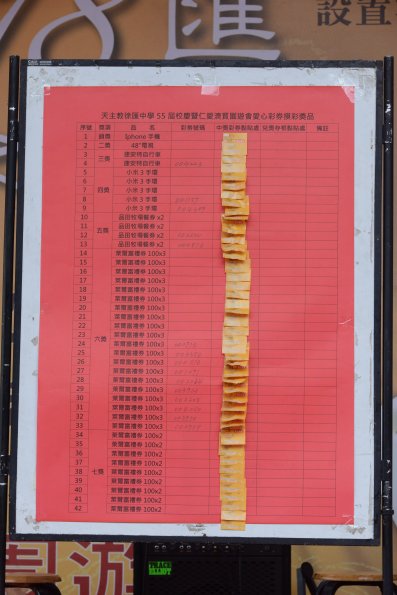 設置
匯
天主教徐匯中學 55 屆校慶暨仁愛濟貧園遊會愛心彩券摸彩獎品
序號 獎項 品 名 彩券號碼 中獎彩券黏貼處 兌獎存根黏貼處 備註
1 頭獎 Iphone 手機
2 二獎 48"電視
3 三獎 捷安特自行車
4 捷安特自行車
5 四獎 小米 3 手環
6 小米 3 手環
7 小米 3 手環
8 小米 3 手環
9 小米 3 手環
10 五獎 品田牧場餐券 x2
11 品田牧場餐券 x2
12 品田牧場餐券 x2
13 品田牧場餐券 x2
14 六獎 萊爾富禮券 100x3
15 萊爾富禮券 100x3
16 萊爾富禮券 100x3
17 萊爾富禮券 100x3
18 萊爾富禮券 100x3
19 萊爾富禮券 100x3
20 萊爾富禮券 100x3
21 萊爾富禮券 100x3
22 萊爾富禮券 100x3
23 萊爾富禮券 100x3
24 萊爾富禮券 100x3
25 萊爾富禮券 100x3
26 萊爾富禮券 100x3
27 萊爾富禮券 100x3
28 萊爾富禮券 100x3
29 萊爾富禮券 100x3
30 萊爾富禮券 100x3
31 萊爾富禮券 100x3
32 萊爾富禮券 100x3
33 萊爾富禮券 100x3
34 七獎 萊爾富禮券 100x2
35 萊爾富禮券 100x2
36 萊爾富禮券 100x2
37 萊爾富禮券 100x2
38 萊爾富禮券 100x2
39 萊爾富禮券 100x2
40 萊爾富禮券 100x2
41 萊爾富禮券 100x2
42 萊爾富禮券 100x2
遊